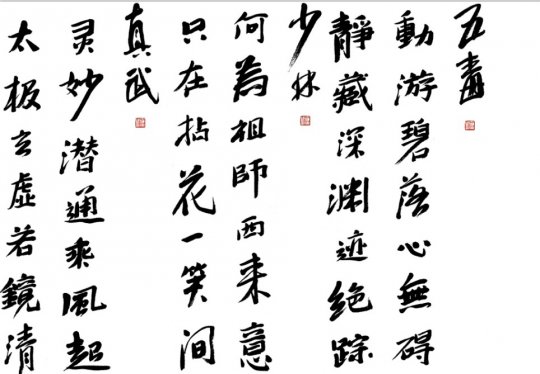 五毒
動游碧落心無碍
靜藏深渊迹絶踪
少林
何為祖師西来意
只在拈花一笑间
真武
灵妙潜通乘風超
太极玄虚若鏡清